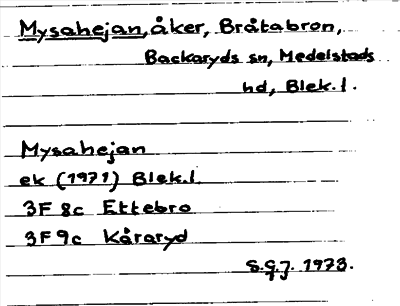 Mysahejan, åker, Bråtabron,
Backaryds sn, Medelstads
hd, Blek. l.
Mysahejan
ek (1971) Blek. l.
3F 8c Ettebro
3F 9c Kåraryd
S.G.J. 1973.